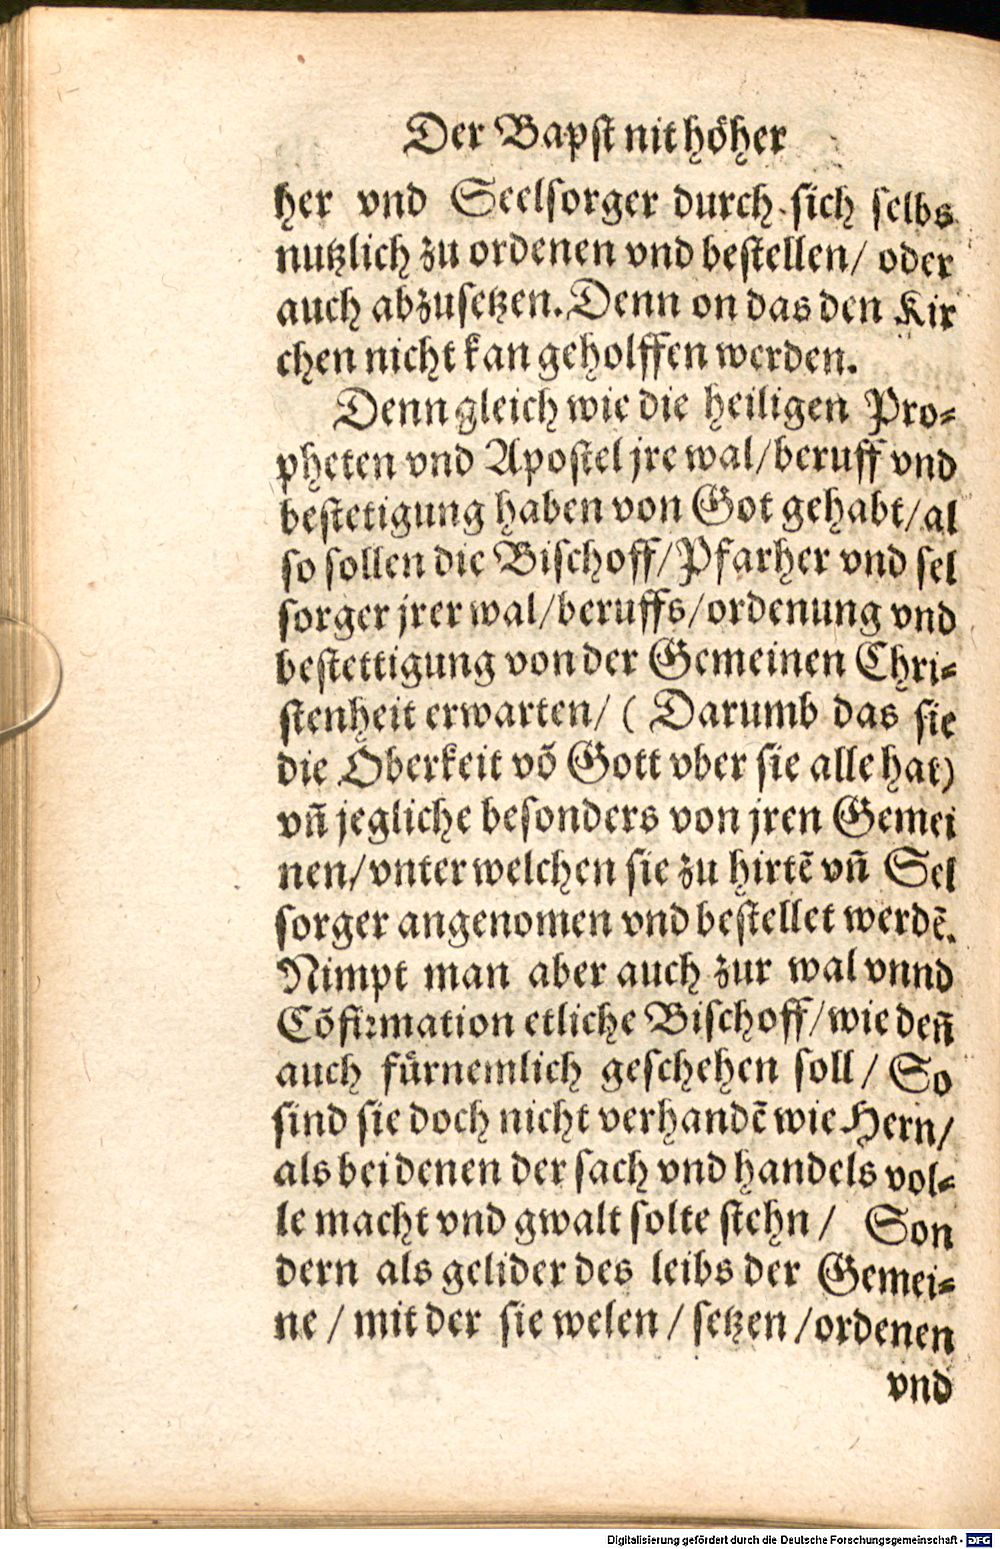 Der Bapst nit höher
her vnd Seelsorger durch sich selbs
nutzlich zu ordenen vnd bestellen/ oder
auch abzusetzen. Denn on das den Kir
chen nicht kan geholffen werden.
Denn gleich wie die heiligen Pro⸗
pheten vnd Apostel jre wal/beruff vnd
bestetigung haben von Got gehabt/al
so sollen die Bischoff/Pfarher vnd sel
sorger jrer wal/beruffs/ordenung vnd
bestettigung von der Gemeinen Chri⸗
stenheit erwarten/ ( Darumb das sie
die Oberkeit võ Gott vber sie alle hat)
vñ jegliche besonders von jren Gemei
nen/vnter welchen sie zu hirtẽ vñ Sel
sorger angenomen vnd bestellet werdẽ.
Nimpt man aber auch zur wal vnnd
Cõfirmation etliche Bischoff/wie deñ
auch fürnemlich geschehen soll/ So
sind sie doch nicht verhandẽ wie Hern/
als bei denen der sach vnd handels vol⸗
le macht vnd gwalt solte stehn/ Son
dern als gelider des leibs der Gemei⸗
ne / mit der sie welen / setzen /ordenen
vnd
Digitalisierung gefördert durch die Deutsche Forschungsgemeinschaft - DFG